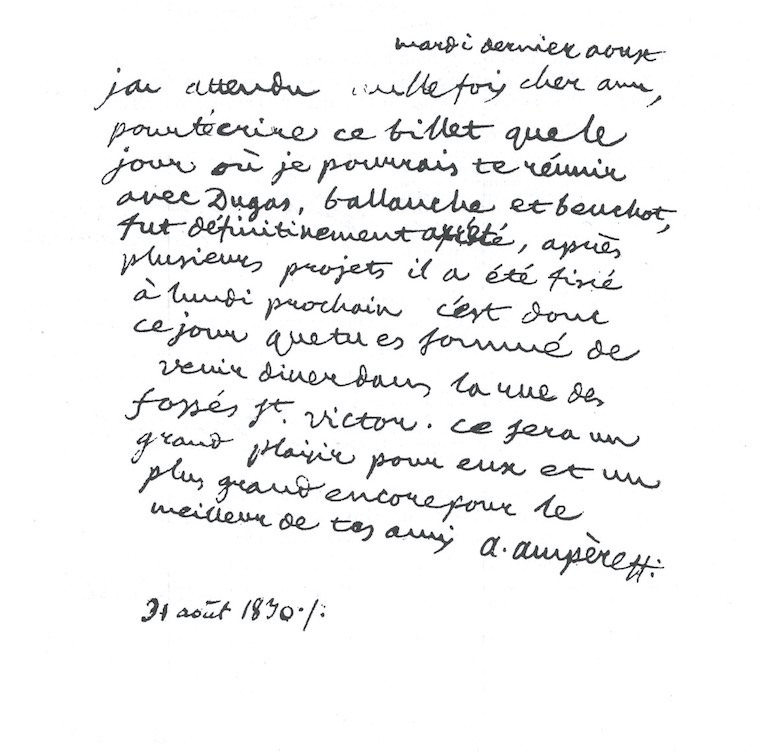 mardi dernier aoust
j'ai attendu mille fois cher ami,
pour t'écrire ce billet que le
jour où je pourrais te réunir
avec Dugas, ballanche et beuchot,
fut définitivement arrêté, après
plusieurs projets il a été fixé
à lundi prochain c'est donc
ce jour que tu es sommé de
venir diner dans la rue des
fossés st. victor. ce sera un
grand plaisir pour eux et un
plus grand encore pour le
meilleur de tes amis a. ampère
31 août 1830./.